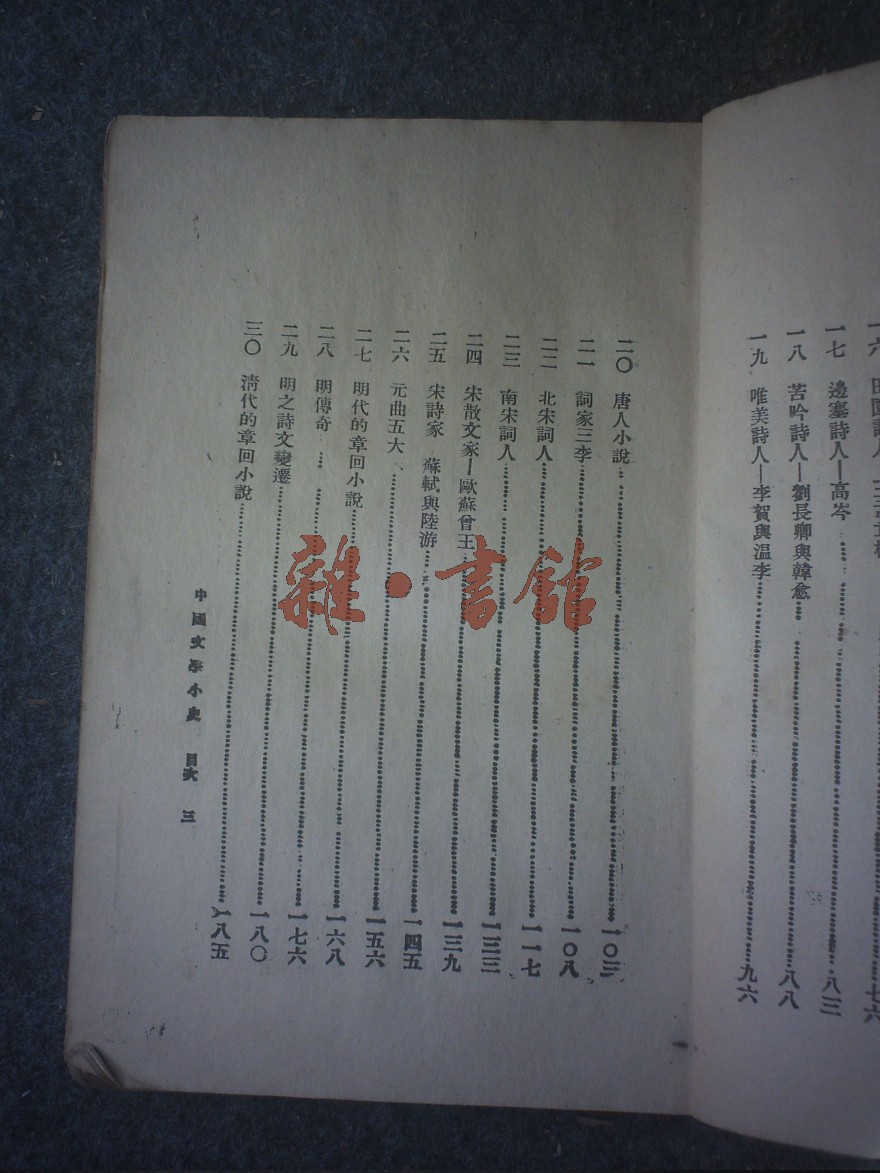 一七 邊塞詩人—高岑 八三
一八 苦吟詩人—劉長卿與韓愈 八八
一九 唯美詩人—李賀與溫李 九六
二〇 唐人小說 一〇三
二一 詞家三李 一〇八
二二 北宋詞人 一一七
二三 南宋詞人
二四 宋散文家—歐蘇曾王 一三九
二五 宋詩家 蘇軾與陸游 一四五
二六 元曲五大 一五六
二七 明代的章回小說 一六八
二八 明傳奇 一七六
二九 明之詩文變遷 一八〇
三〇 清代的章回小說 一八五
中國文學小史 目次 三
雜·書館